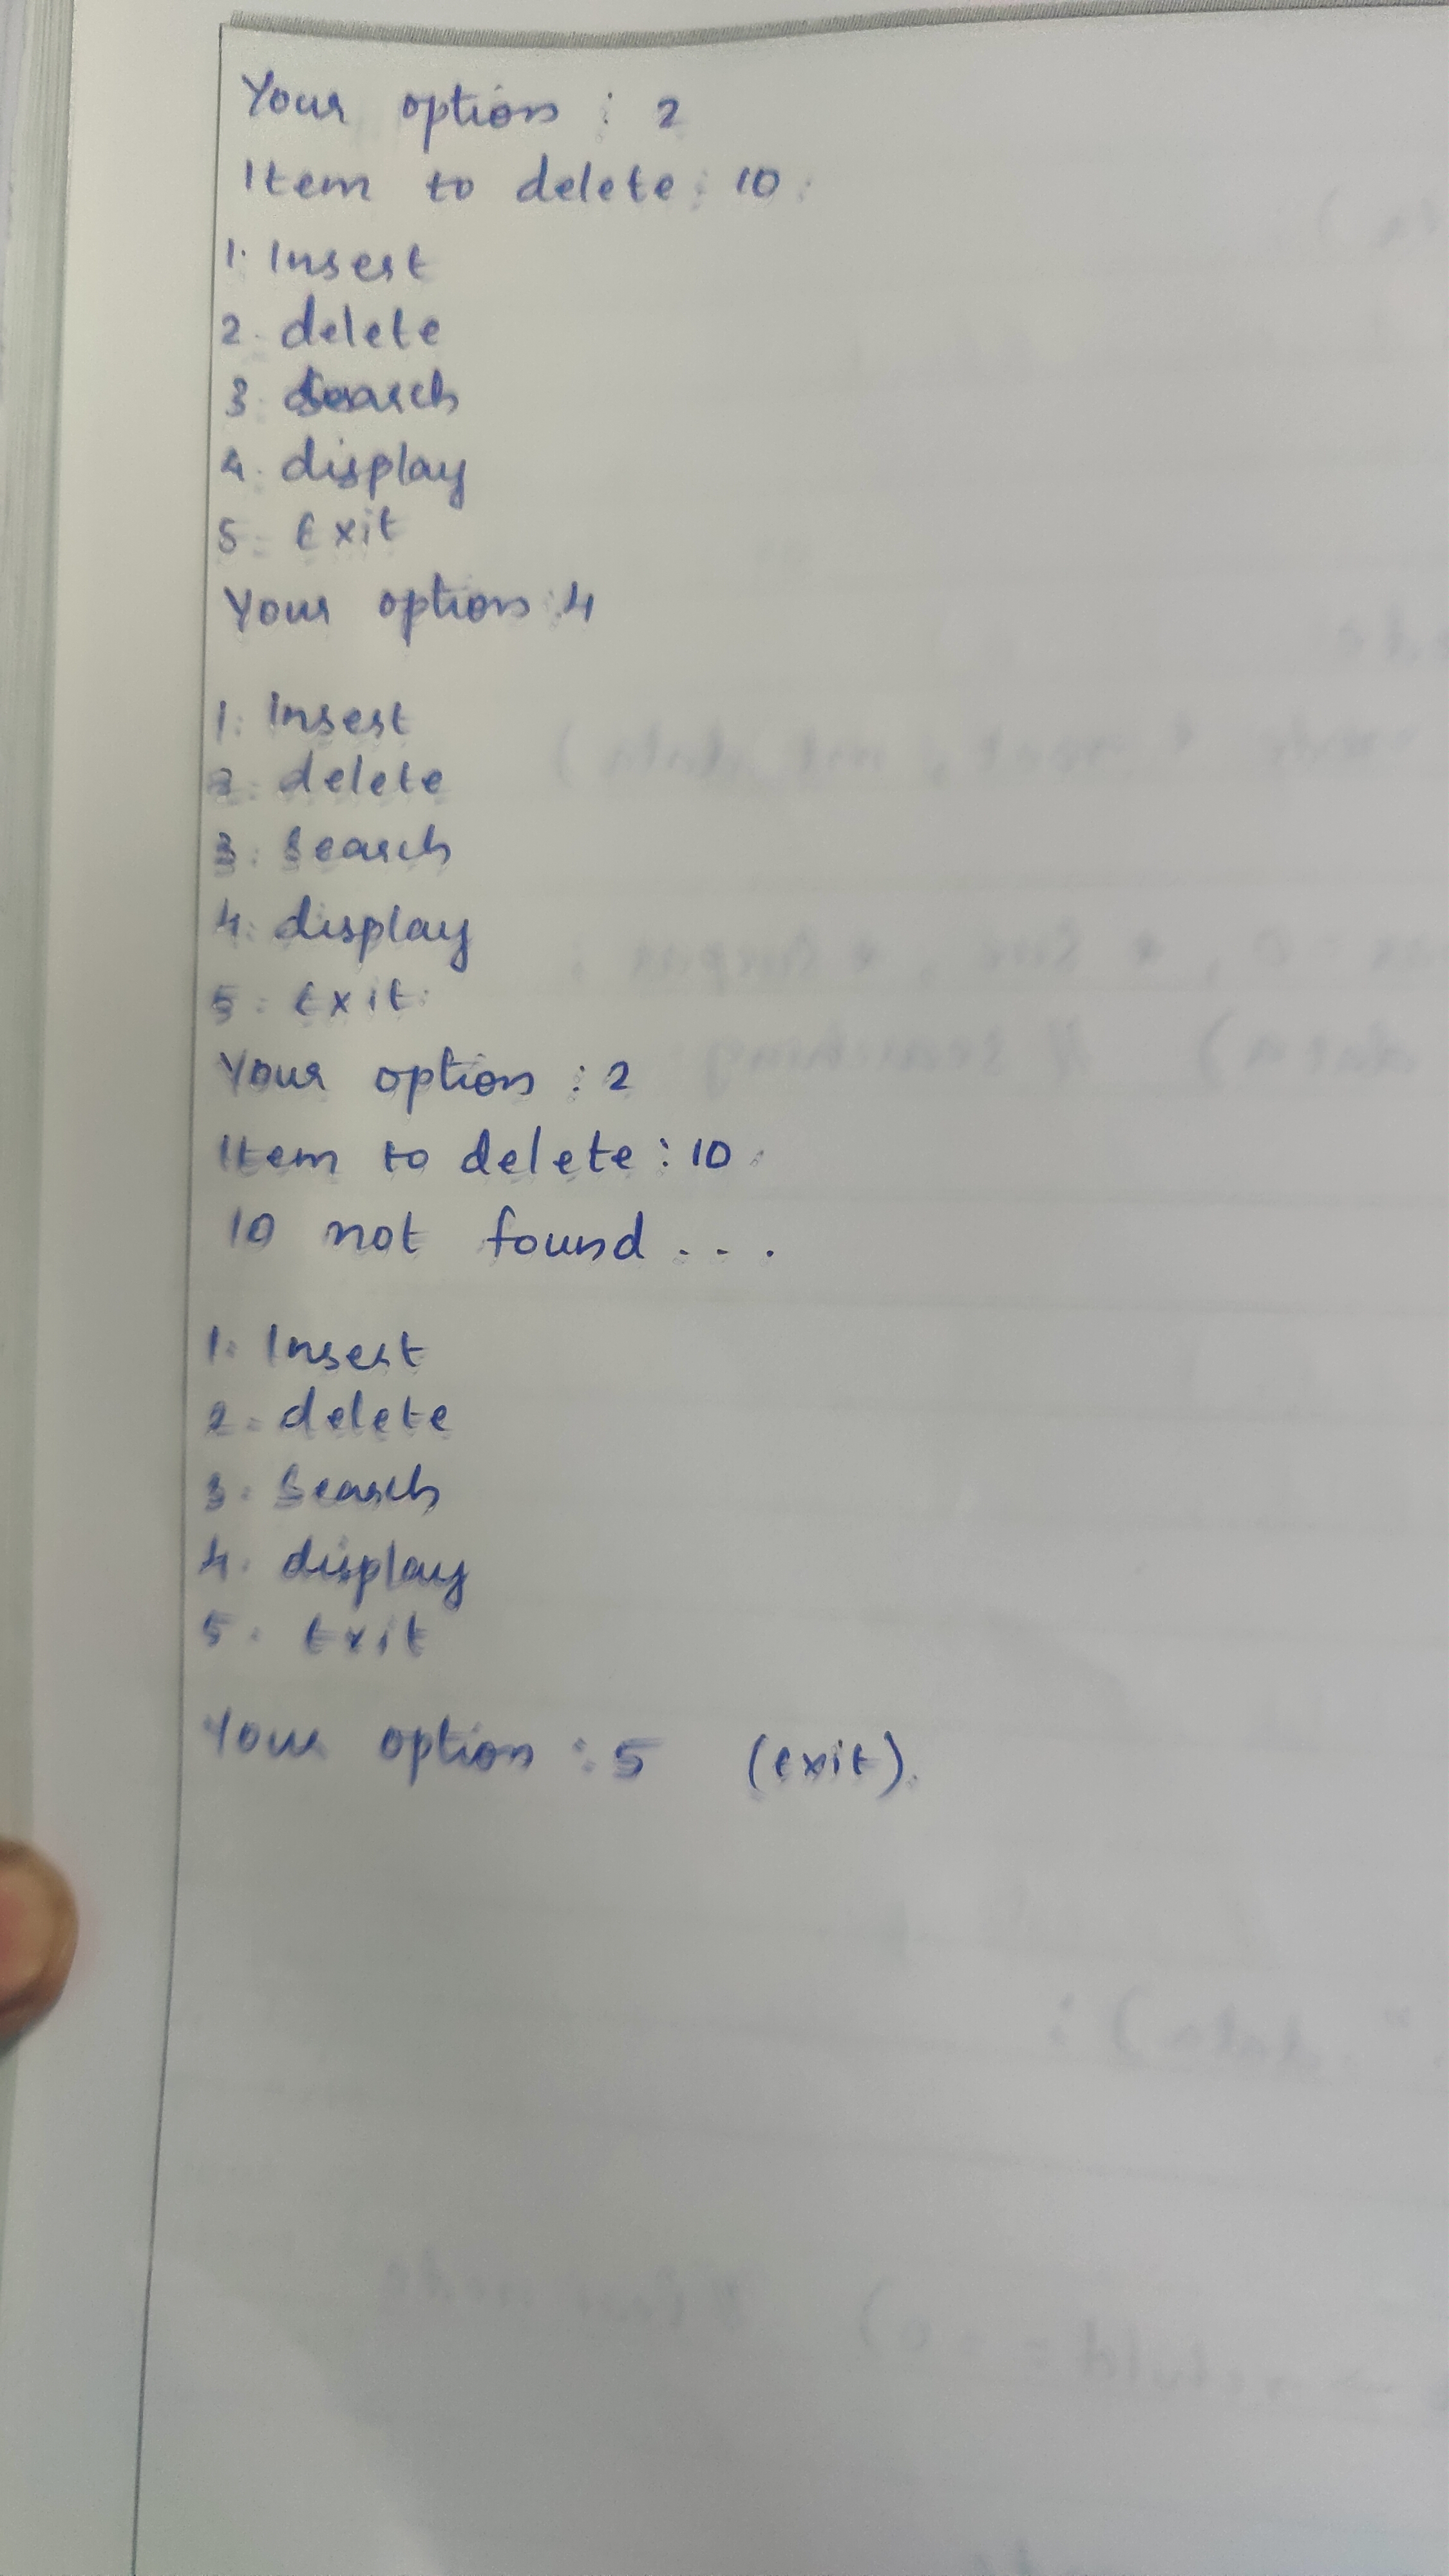 Your option : 2
Item to delete : 10
1. Insert
2. delete
3. Search
4. display
5. Exit
Your option : 4
1. Insert
2. delete
3. Search
4. display
5. Exit
Your option : 2
Item to delete : 10
10 not found ...
1. Insert
2. delete
3. Search
4. display
5. Exit
Your option : 5 (exit).